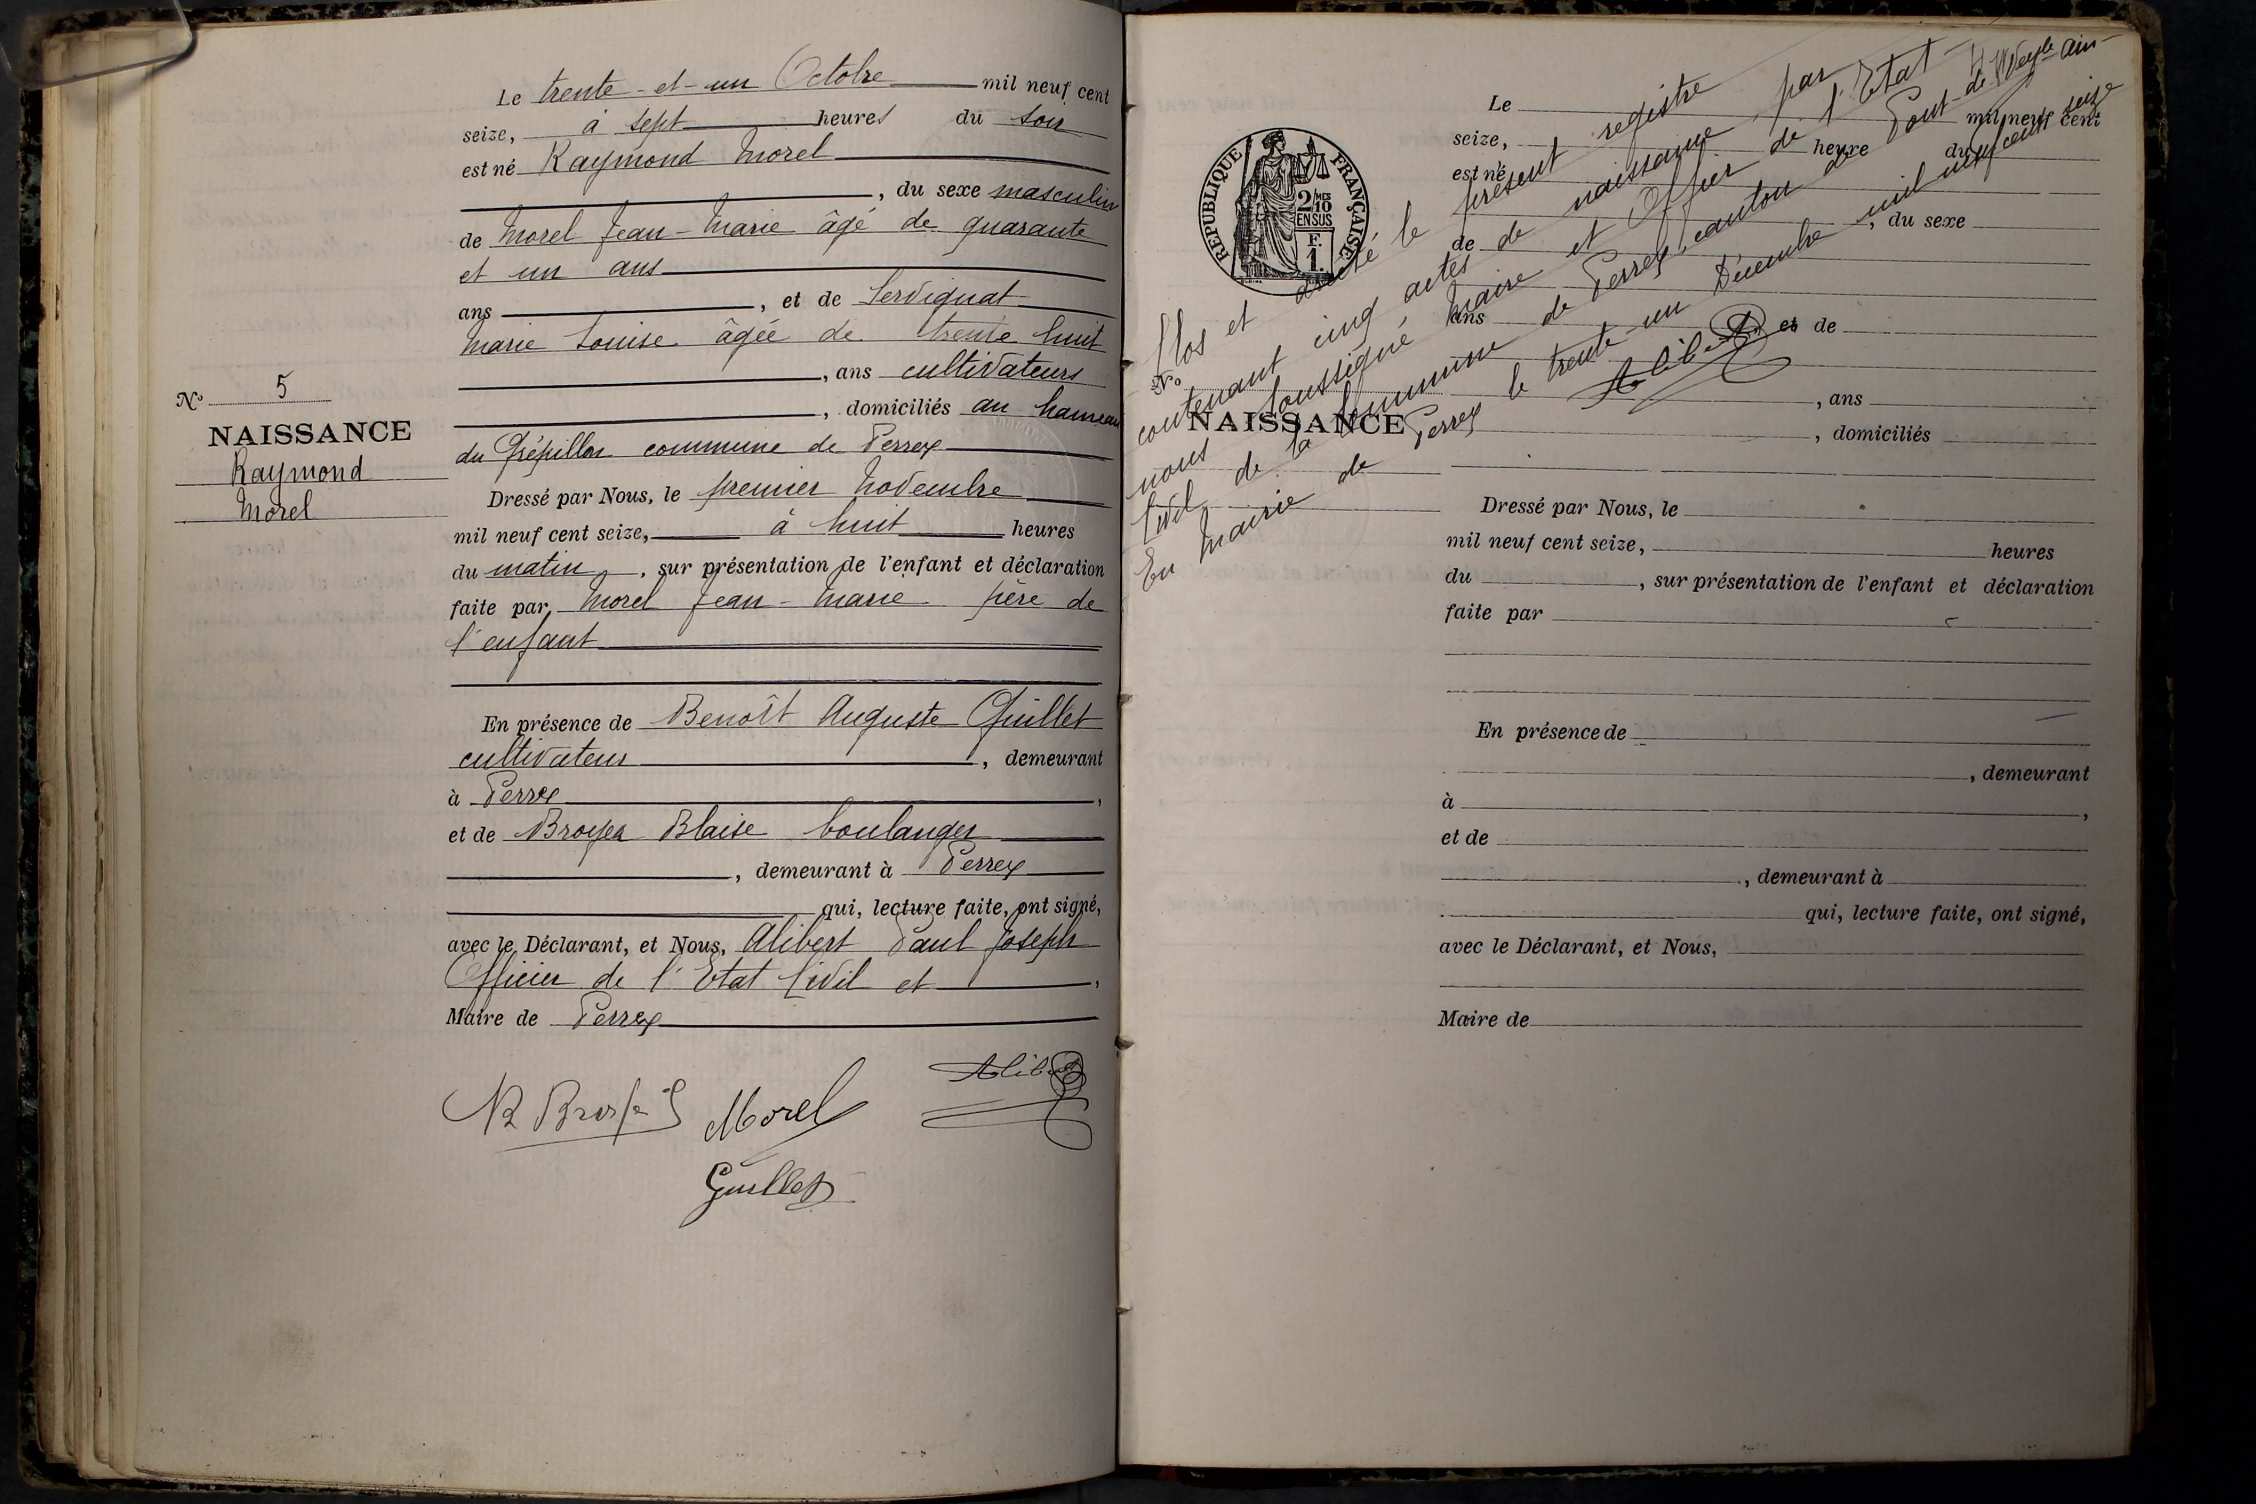 Le trente-et-un Octobre mil neuf cent
seize, à sept heures du soir
est né Raymond Morel
, du sexe masculin
de Morel Jean-Marie âgé de quarante
et un ans
ans , et de Servignat
Marie Louise âgée de trente huit
, ans cultivateurs
, domiciliés au hameau
du commune de Perrex
Dressé par Nous, le premier Novembre
mil neuf cent seize, à huit heures
du matin, sur présentation de l'enfant et déclaration
faite par Morel Jean-Marie père de
l'enfant
En présence de Benoît Auguste Guillet
cultivateur , demeurant
à Perrex ,
et de Broyer Blaise boulanger
, demeurant à Perrex
qui, lecture faite, ont signé,
avec le Déclarant, et Nous, Alibert Paul Joseph
Officier de l'Etat Civil et ,
Maire de Perrex
Nº 5
NAISSANCE
Raymond
Morel
Morel
Alibert
Guillet
RÉPUBLIQUE FRANÇAISE
2/10
MES
EN SUS
F.
1.
Clos et arrêté le présent registre
contenant cinq actes de naissance, par
nous soussigné, Maire et Officier de l'Etat-
Civil de la Commune de Perrex, canton de Pont-de-Veyle Ain-
En Mairie de Perrex le trente-un Décembre mil neuf cent seize
Alibert
Le mil neuf cent
seize, heure du
est né
, du sexe
de
ans , et de
, ans
, domiciliés
Nº
NAISSANCE
Dressé par Nous, le
mil neuf cent seize, heures
du , sur présentation de l'enfant et déclaration
faite par
En présence de
, demeurant
à ,
et de
, demeurant à
qui, lecture faite, ont signé,
avec le Déclarant, et Nous,
Maire de